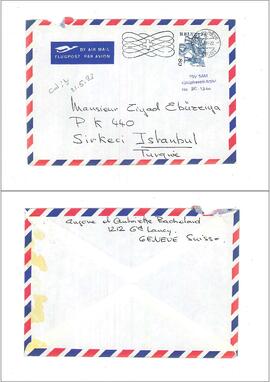 BY AIR MAIL
FLUGPOST PAR AVION
HELVETIA
80
TSV SAM
No
Monsieur Ziyad Ebüzziya
P K 440
Sirkeci Istanbul
Turquie
Eugène et Antoinette Bacheland
1212 Gd Lancy.
GENEVE Suisse